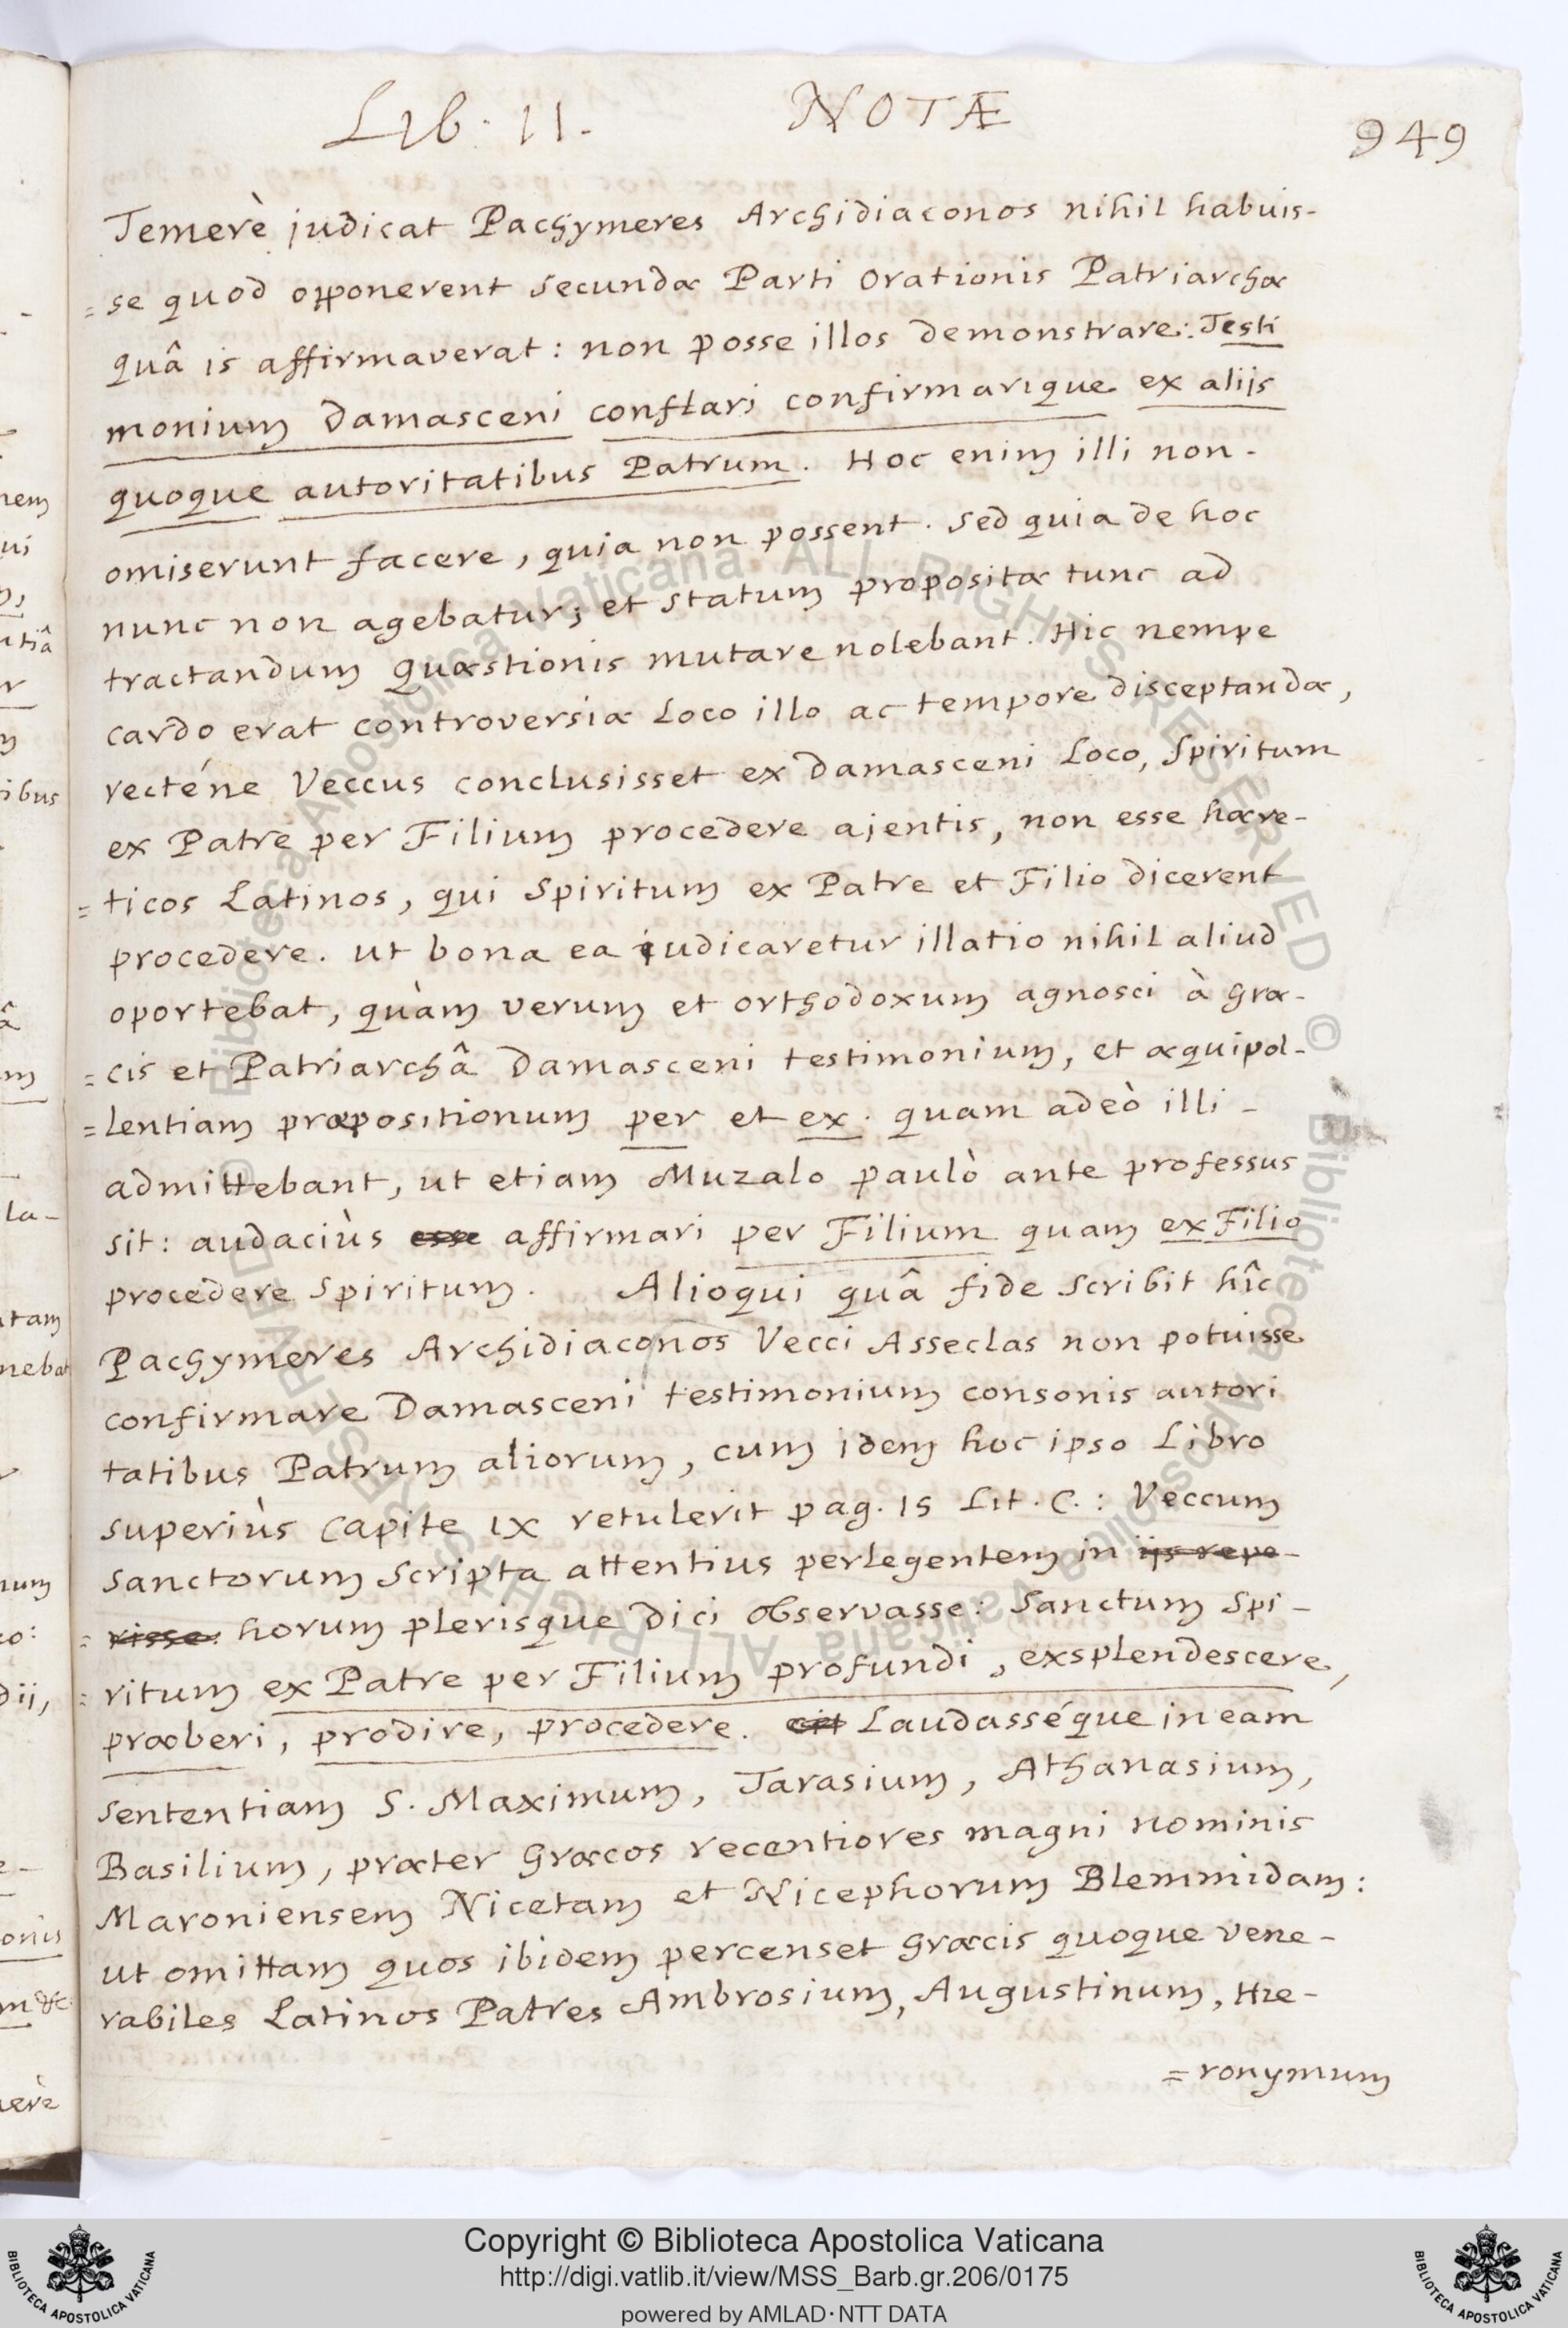 Lib. II. NOTÆ 949
Temerè judicat Pachymeres Archidiaconos nihil habuis-
=se quod opponerent secundæ Parti orationis Patriarchæ
quâ is affirmaverat: non posse illos demonstrare: Testi
monium Damasceni conflari confirmarique ex aliis
quoque autoritatibus Patrum. Hoc enim illi non-
omiserunt facere, quia non possent. Sed quia de hoc
nunc non agebatur; et statum propositæ tunc ad
tractandum quæstionis mutare nolebant. Hic nempe
cardo erat controversiæ Loco illo ac tempore disceptandæ,
recténe Veccus conclusisset ex Damasceni Loco, Spiritum
ex Patre per Filium procedere ajentis, non esse hære-
=ticos Latinos, qui Spiritum ex Patre et Filio dicerent
procedere. ut bona ea judicaretur illatio nihil aliud
oportebat, quàm verum et orthodoxum agnosci à Græ-
=cis et Patriarchâ Damasceni testimonium, et æquipol-
=lentiam præpositionum per et ex. quam adeò illi-
admittebant, ut etiam Muzalo paulò ante professus
sit: audaciùs esse affirmari per Filium quam ex Filio
procedere Spiritum. Alioqui quâ fide scribit hîc
Pachymeres Archidiaconos Vecci Asseclas non potuisse
confirmare Damasceni testimonium consonis autori
tatibus Patrum aliorum, cum idem hoc ipso Libro
superiùs capite IX retulerit pag. 15 Lit. C.: Veccum
Sanctorum Scripta attentius perlegentem in iis repe-
=risse: horum plerisque dici observasse: Sanctum Spi-
=ritum ex Patre per Filium profundi, exsplendescere,
præberi, prodire, procedere. Laudasséque in eam
sententiam S. Maximum, Tarasium, Athanasium,
Basilium, præter Græcos recentiores magni nominis
Maroniensem Nicetam et Nicephorum Blemmidam:
ut omittam quos ibidem percenset Græcis quoque vene-
rabiles Latinos Patres Ambrosium, Augustinum, Hie-
=ronymum
Copyright © Biblioteca Apostolica Vaticana
http://digi.vatlib.it/view/MSS_Barb.gr.206/0175
powered by AMLAD·NTT DATA
BIBLIOTECA APOSTOLICA VATICANA
BIBLIOTECA APOSTOLICA VATICANA
© Biblioteca Apostolica Vaticana ALL RIGHTS RESERVED
© Biblioteca Apostolica Vaticana ALL RIGHTS RESERVED